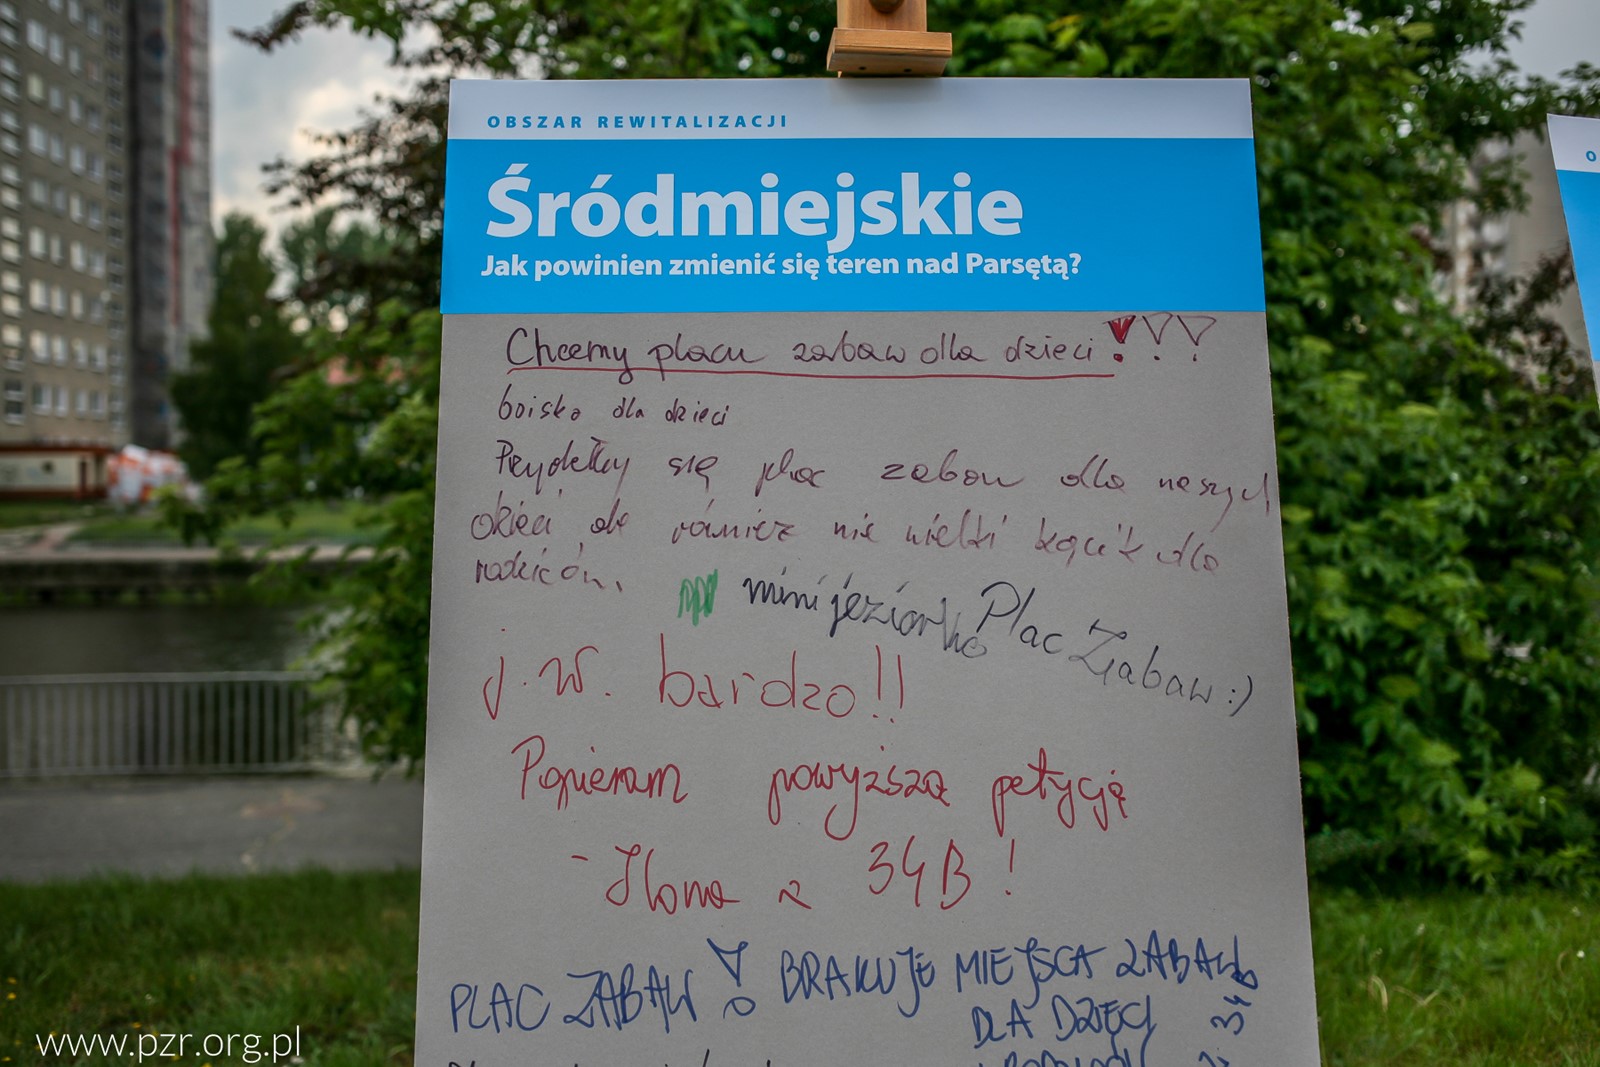 OBSZAR REWITALIZACJI
Śródmiejskie
Jak powinien zmienić się teren nad Parsętą?
Chcemy placu zabaw dla dzieci!!!
boisko dla dzieci
Przydałby się plac zabaw dla naszych
dzieci ale również nie wielki kącik dla
rodziców.
mini jeziorko
Plac Zabaw :)
j.w. bardzo!!
Popieram powyższą petycję
- Ilona z 34B!
PLAC ZABAW! BRAKUJE MIEJSCA ZABAW
DLA DZIECI
34B
www.pzr.org.pl